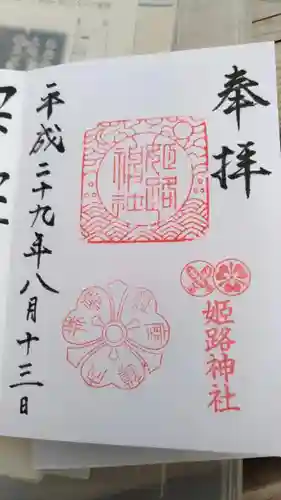 奉拝
姫路神社
姫路
神社
平成二十九年八月十三日